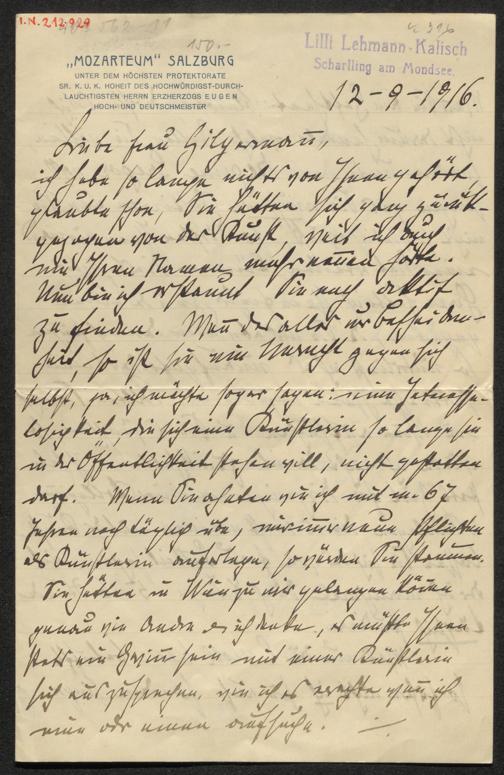 I.N. 212.929
150.-
„MOZARTEUM" SALZBURG
UNTER DEM HÖCHSTEN PROTEKTORATE
SR. K. U. K. HOHEIT DES HOCHWÜRDIGST-DURCH-
LAUCHTIGSTEN HERRN ERZHERZOGS EUGEN
HOCH- UND DEUTSCHMEISTER
Lilli Lehmann-Kalisch
Scharfling am Mondsee.
12-9-1916.
Liebe Frau Hilgermann,
ich habe so lange nichts von Ihnen gehört,
glaubte schon, Sie hätten sich ganz zurück-
gezogen von der Kunst, weil ich auch
nie Ihren Namen mehr nennen hörte.
Nun bin ich erstaunt Sie noch aktif
zu finden. Wenn das alles nur Bescheiden-
heit, so ist sie ein Unrecht gegen sich
selbst, ja, ich möchte sogar sagen: eine Interesse-
losigkeit, die sich eine Künstlerin so lange sie
in der Öffentlichkeit stehen will, nicht gestatten
darf. Wenn Sie ahnten wie ich mit m. 67
Jahren noch täglich übe, mir immer neue Pflichten
als Künstlerin auferlege, so würden Sie staunen.
Sie hätten in Wien zu mir gelangen können
genau wie Andre u. ich denke, es müßte Ihnen
stets ein Gewinn sein mit einer Künstlerin
sich auszusprechen, wie ich es erachte wenn ich
eine oder einen aufsuche.